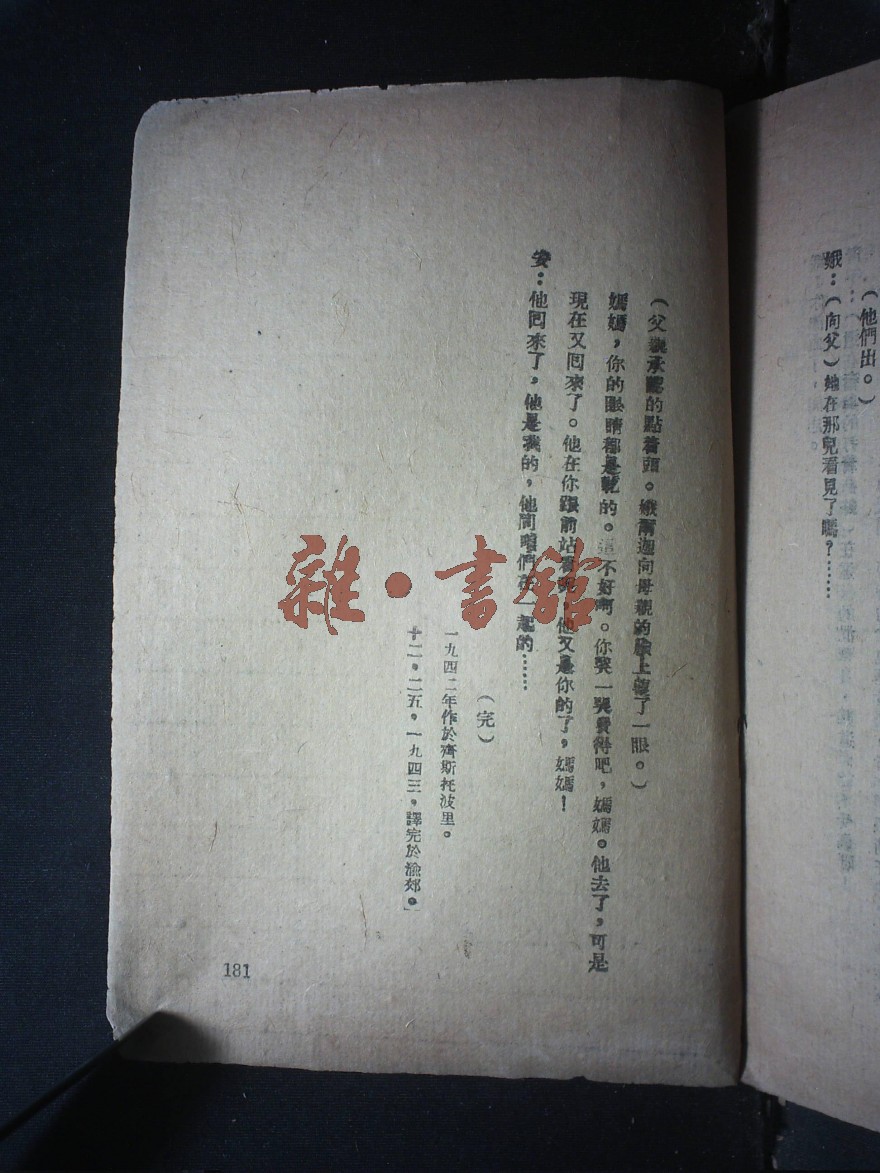 (他們出。)
娥：(向父)她在那兒看見了嗎？……
(父親承認的點着頭。娥爾迦向母親的臉上瞭了一眼。)
媽媽，你的眼睛都是乾的。這不好啊。你哭一哭覺得吧，媽媽。他去了，可是
現在又回來了。他在你跟前站着呢，他又是你的了，媽媽！
安：他回來了，他是我的，他同咱們在一起的……
(完)
一九四二年作於齊斯托波里。
十二，二五，一九四三，譯完於渝郊。
181
雜·書館